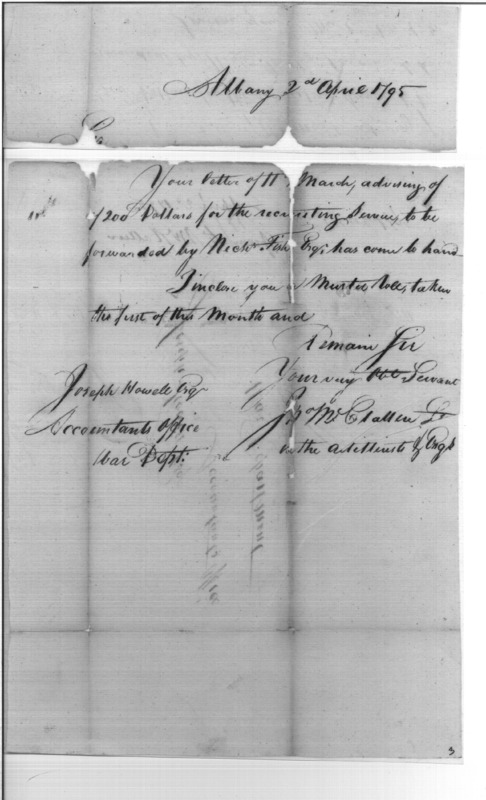 Albany 2d April 1795
Sir
Your letter of 11 March, advising of
200 Dollars for the recruiting Service, to be
forwarded by Nichs Fish Esqr, has come to hand
I inclose you a Muster Roll, taken
the first of this Month and
Remain Sir
Your very Hble Servant
Jno McClallen Lt
in the Artillerists & Engrs
Joseph Howell Esqr
Accountants office
War Dept:
3